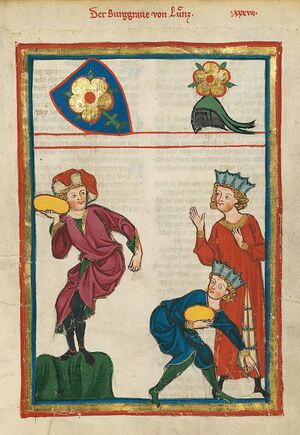 Der Burggraue von Lünz. xxxvij.